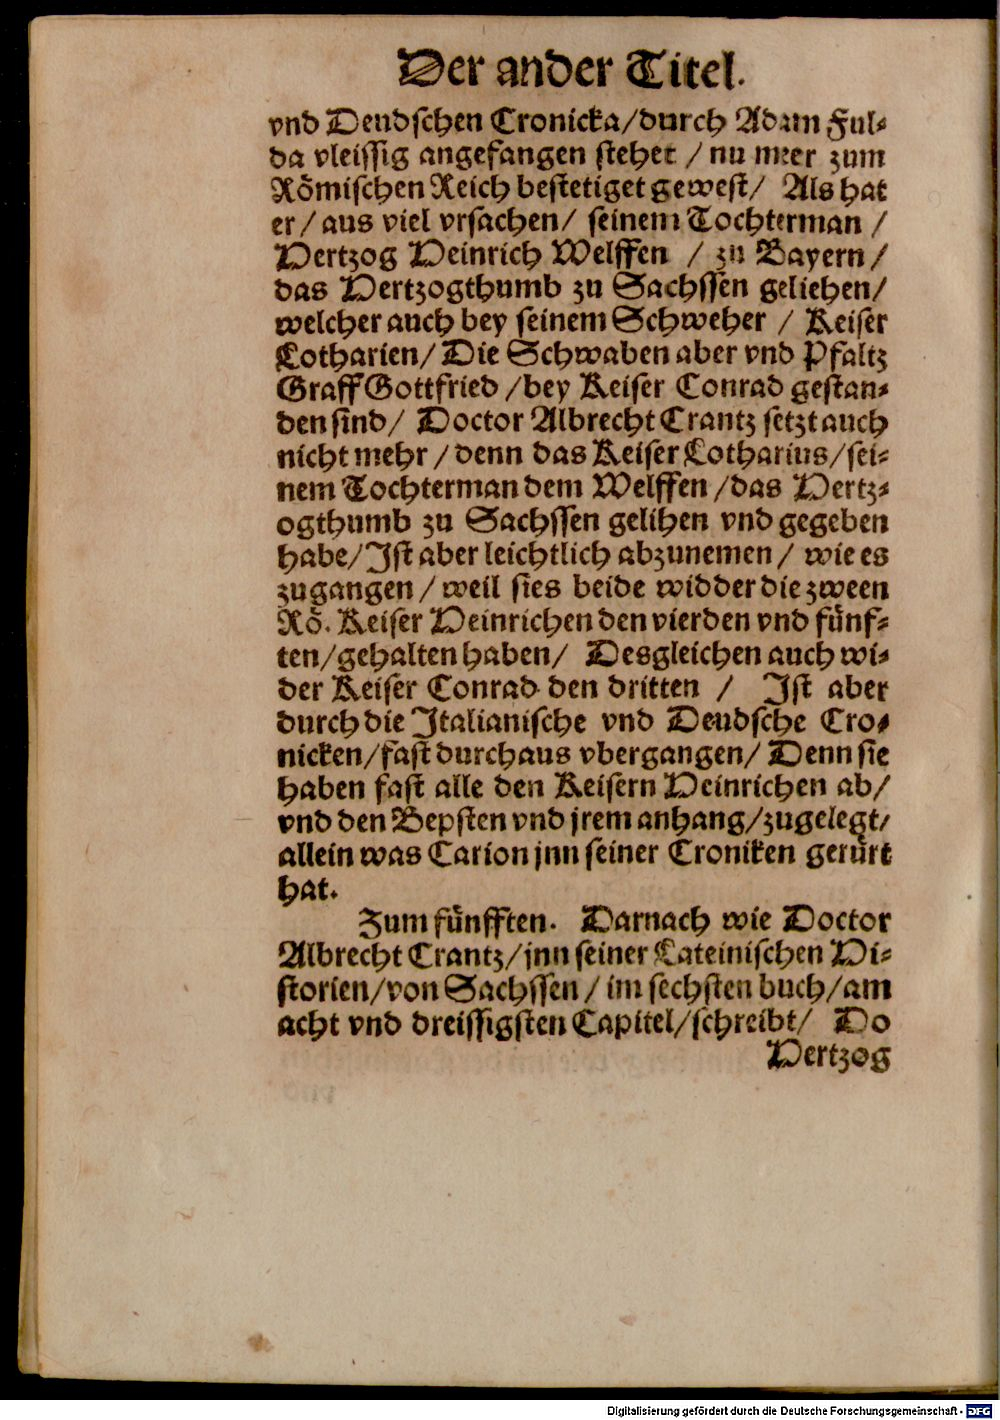 Der ander Titel.
vnd Deudschen Cronicka/durch Adam Ful-
da vleissig angefangen stehet / nu meer zum
Römischen Reich bestetiget gewest/ Als hat
er/ aus viel vrsachen/ seinem Tochterman /
Hertzog Heinrich Welffen / zu Bayern/
das Hertzogthumb zu Sachssen geliehen/
welcher auch bey seinem Schweher / Keiser
Lotharien/ Die Schwaben aber vnd Pfaltz
Graff Gottfried /bey Keiser Conrad gestan-
den sind/ Doctor Albrecht Crantz setzt auch
nicht mehr /denn das Keiser Lotharius/sei-
nem Tochterman dem Welffen /das Hertz-
ogthumb zu Sachssen gelihen vnd gegeben
habe/Jst aber leichtlich abzunemen/ wie es
zugangen / weil sies beide widder die zween
Rö. Keiser Heinrichen den vierden vnd fünf-
ten/gehalten haben/ Desgleichen auch wi-
der Keiser Conrad den dritten / Jst aber
durch die Jtalianische vnd Deudsche Cro-
nicken/fast durchaus vbergangen/ Denn sie
haben fast alle den Keisern Heinrichen ab/
vnd den Bepsten vnd jrem anhang/zugelegt/
allein was Carion jnn seiner Croniken gerürt
hat.
Zum fünfften. Darnach wie Doctor
Albrecht Crantz/jnn seiner Lateinischen Hi-
storien/von Sachssen / im sechsten buch/am
acht vnd dreissigsten Capitel/schreibt/ Do
Hertzog
Digitalisierung gefördert durch die Deutsche Forschungsgemeinschaft - DFG